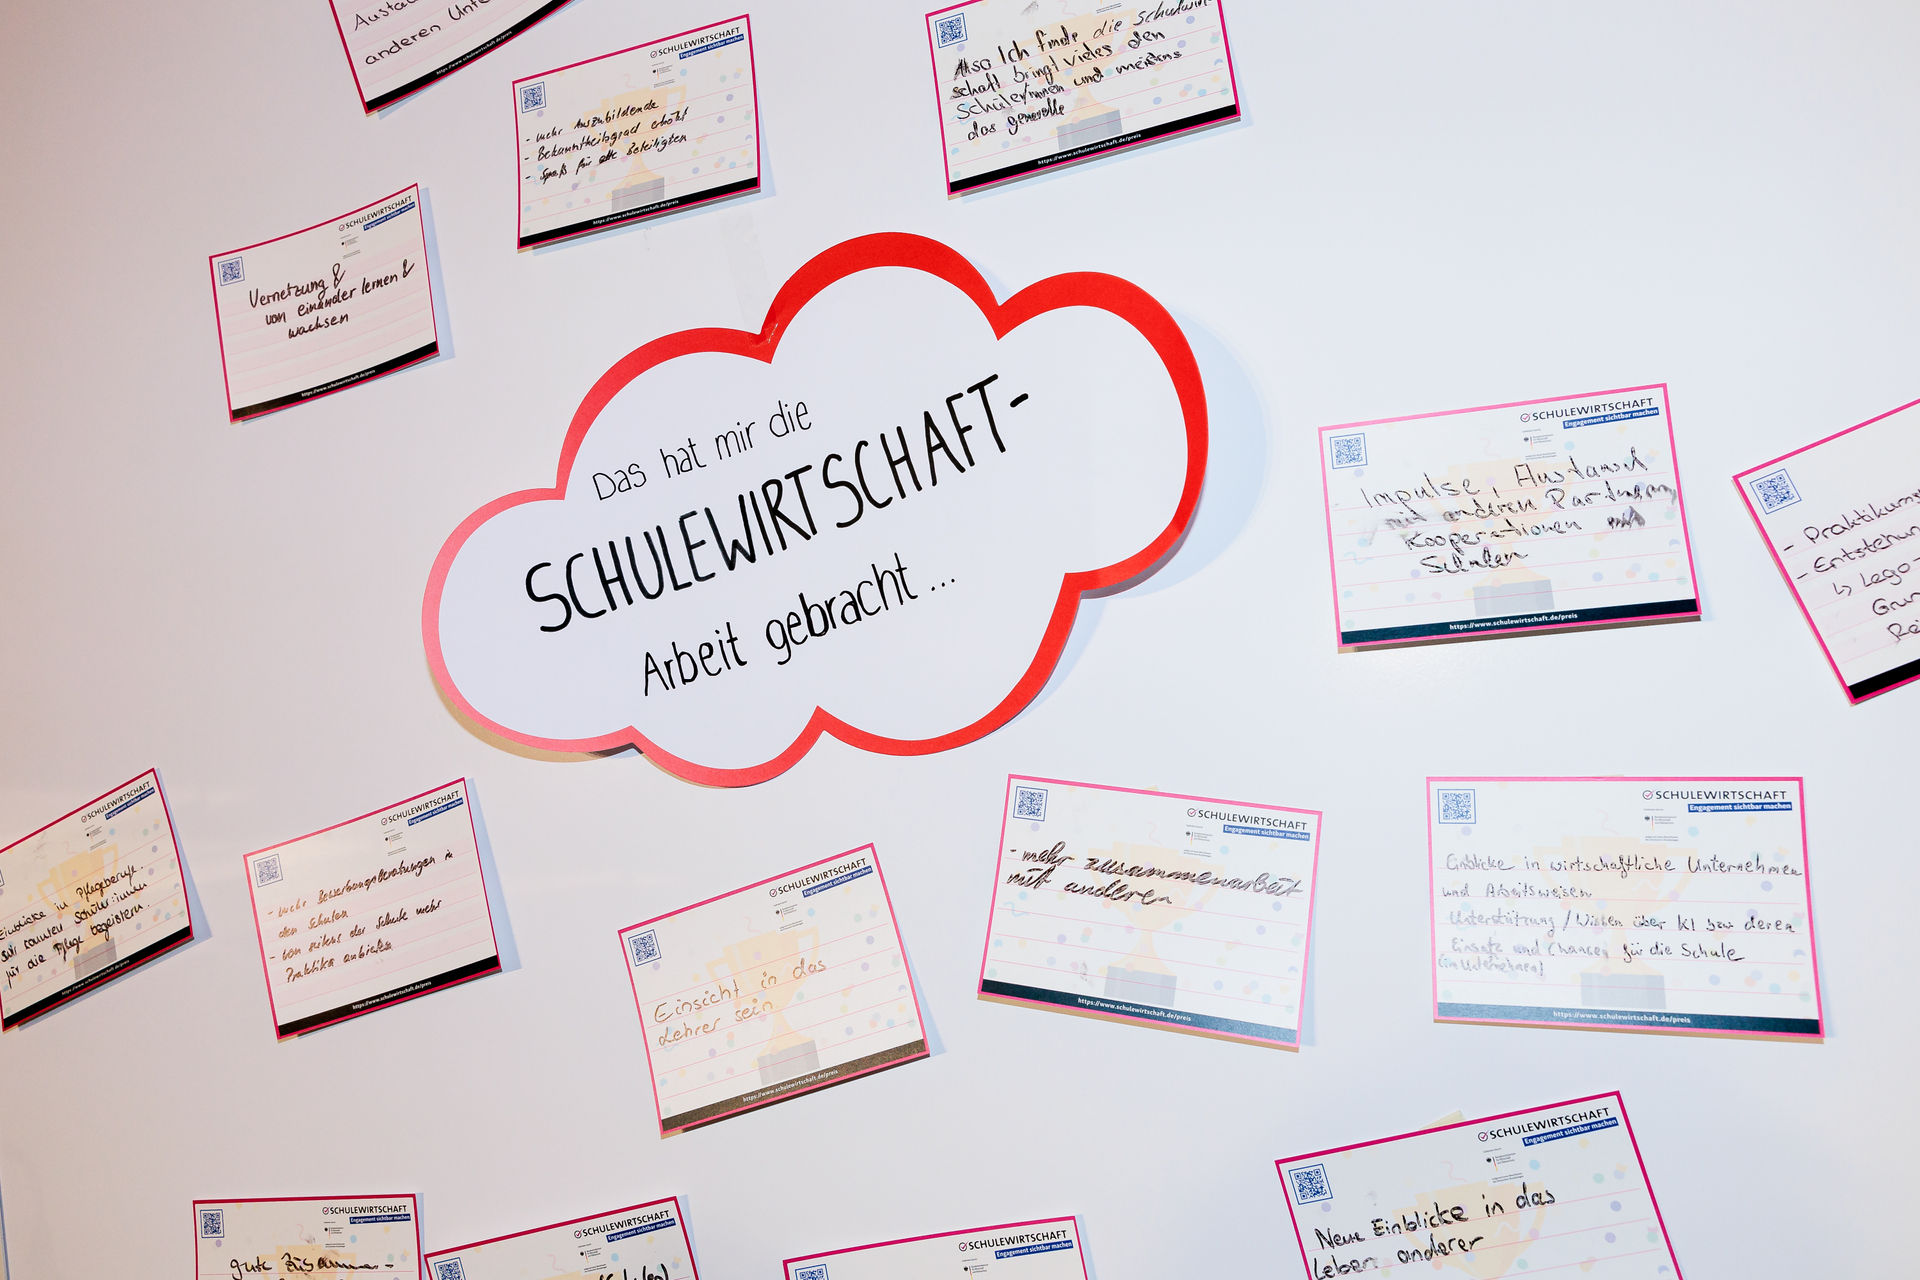 Austau
anderen Unte
https://www.schulewirtschaft.de/preis
SCHULEWIRTSCHAFT
Engagement sichtbar machen
- mehr Auszubildende
- Bekanntheitsgrad erhöht
- Spaß für alle Beteiligten
https://www.schulewirtschaft.de/preis
Also Ich finde die Schulewirt
schaft bringt vieles den
Schüler/innen und meistens
das generelle
https://www.schulewirtschaft.de/preis
SCHULEWIRTSCHAFT
Engagement sichtbar machen
Vernetzung &
von einander lernen &
wachsen
https://www.schulewirtschaft.de/preis
Das hat mir die
SCHULEWIRTSCHAFT-
Arbeit gebracht ...
SCHULEWIRTSCHAFT
Engagement sichtbar machen
- Impulse, Austausch
mit anderen Partnern
Kooperationen mit
Schulen
https://www.schulewirtschaft.de/preis
- Praktikums
- Entstehun
↳ Lego-
Gru
Rei
SCHULEWIRTSCHAFT
Engagement sichtbar machen
Einblicke in Pflegeberufe.
Wir konnten Schüler:innen
für die Pflege begeistern.
https://www.schulewirtschaft.de/preis
SCHULEWIRTSCHAFT
Engagement sichtbar machen
- mehr Bewerbungsberatungen in
den Schulen
- von seiten der Schule mehr
Praktika anbieten
https://www.schulewirtschaft.de/preis
SCHULEWIRTSCHAFT
Engagement sichtbar machen
Einsicht in das
Lehrer sein
https://www.schulewirtschaft.de/preis
SCHULEWIRTSCHAFT
Engagement sichtbar machen
- mehr zusammenarbeit
mit anderen
https://www.schulewirtschaft.de/preis
SCHULEWIRTSCHAFT
Engagement sichtbar machen
Einblicke in wirtschaftliche Unternehmen
und Arbeitsweisen
Unterstützung / Wissen über KI bzw deren
Einsatz und Chancen für die Schule
(im Unternehmen)
https://www.schulewirtschaft.de/preis
SCHULEWIRTSCHAFT
Engagement sichtbar machen
gute Zusamme-
SCHULEWIRTSCHAFT
Engagement sichtbar machen
SCHULEWIRTSCHAFT
Engagement sichtbar machen
SCHULEWIRTSCHAFT
Engagement sichtbar machen
Neue Einblicke in das
Leben anderer